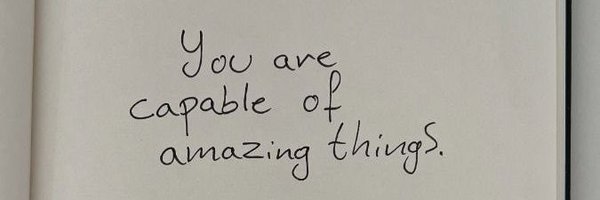 You are
capable of
amazing things.